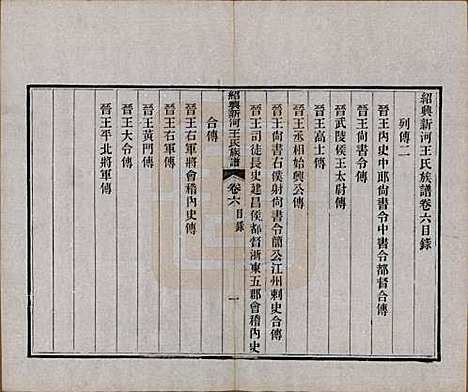 紹興新河王氏族譜卷六目錄
列傳二
晉王內史中郎尙書令中書令都督合傳
晉王尙書令傳
晉武陵侯王太尉傳
晉王高士傳
晉王丞相始興公傳
晉王尙書右僕射尙書令簡公江州刺史合傳
晉王司徒長史建昌侯都督浙東五郡會稽內史
紹興新河王氏族譜 卷六目錄 一
合傳
晉王右軍將會稽內史傳
晉王右軍傳
晉王黃門傳
晉王大令傳
晉王平北將軍傳